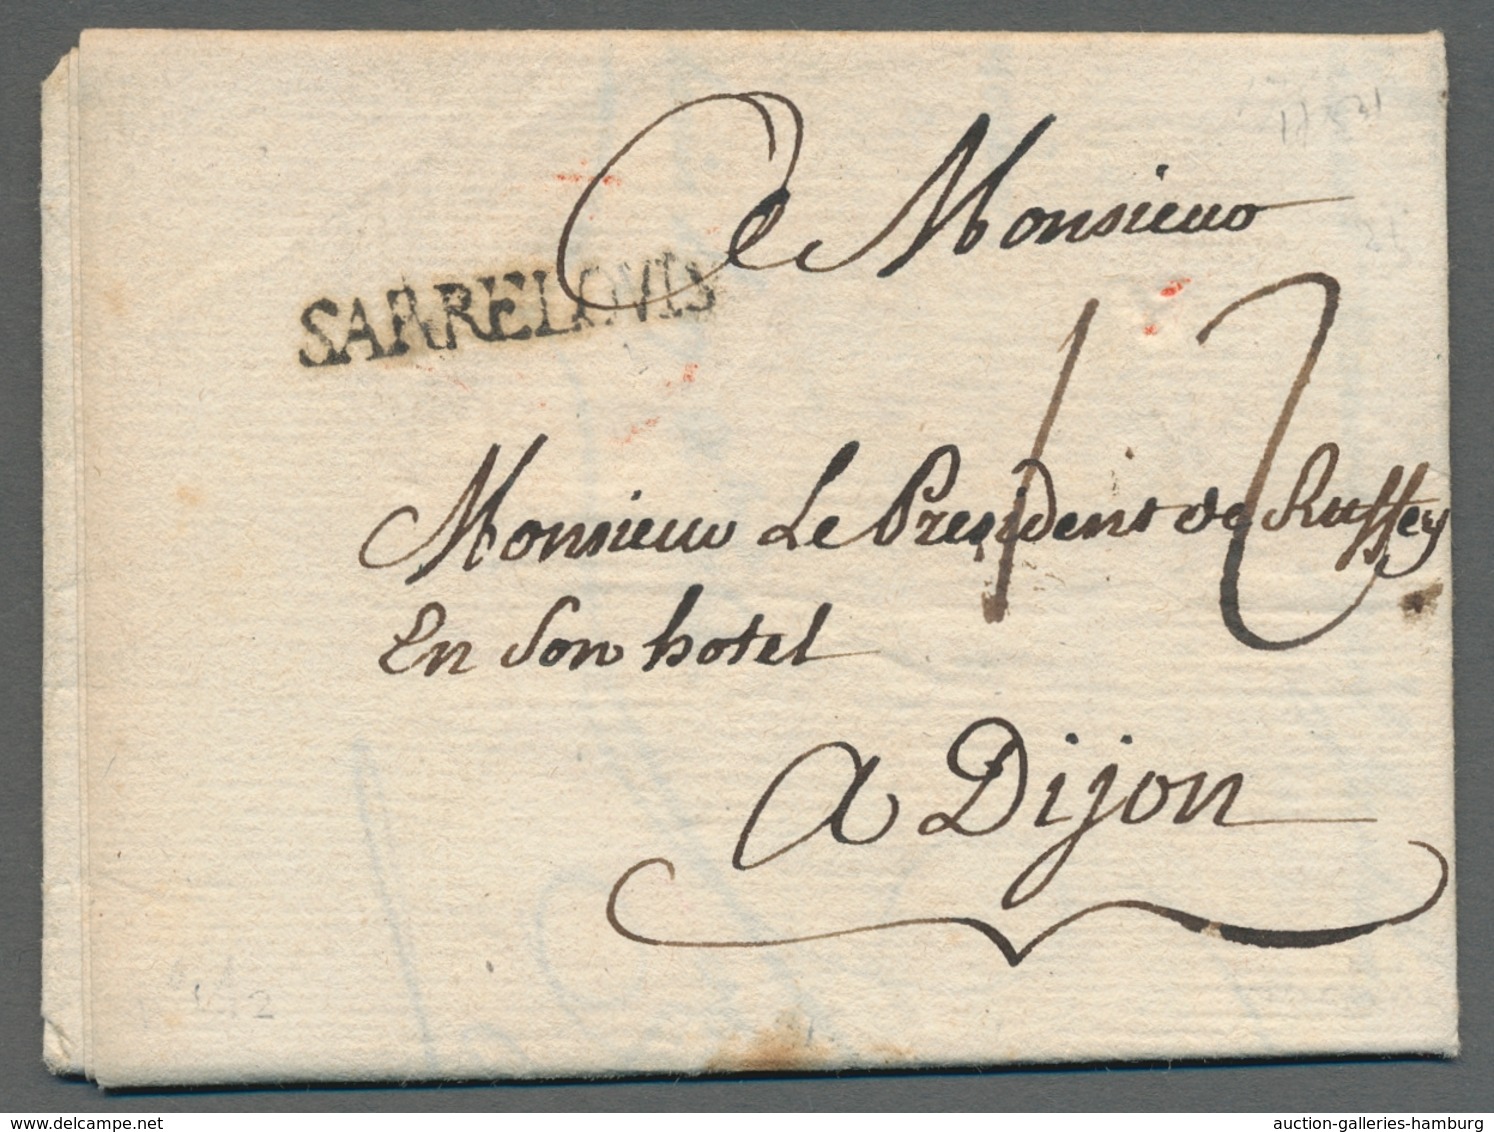 de Monsieur
SARRELOVIS
12
Monsieur Le President de Ruffey
En Son hotel
a Dijon
delcampe.net
auction-galleries-hamburg